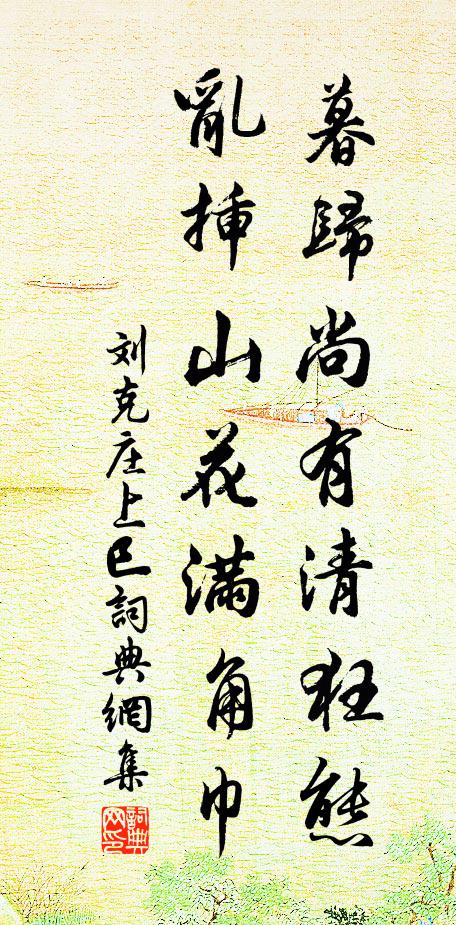 暮歸尚有清狂態
亂挿山花滿角巾
刘克庄上巳詞典網集
詞典网印